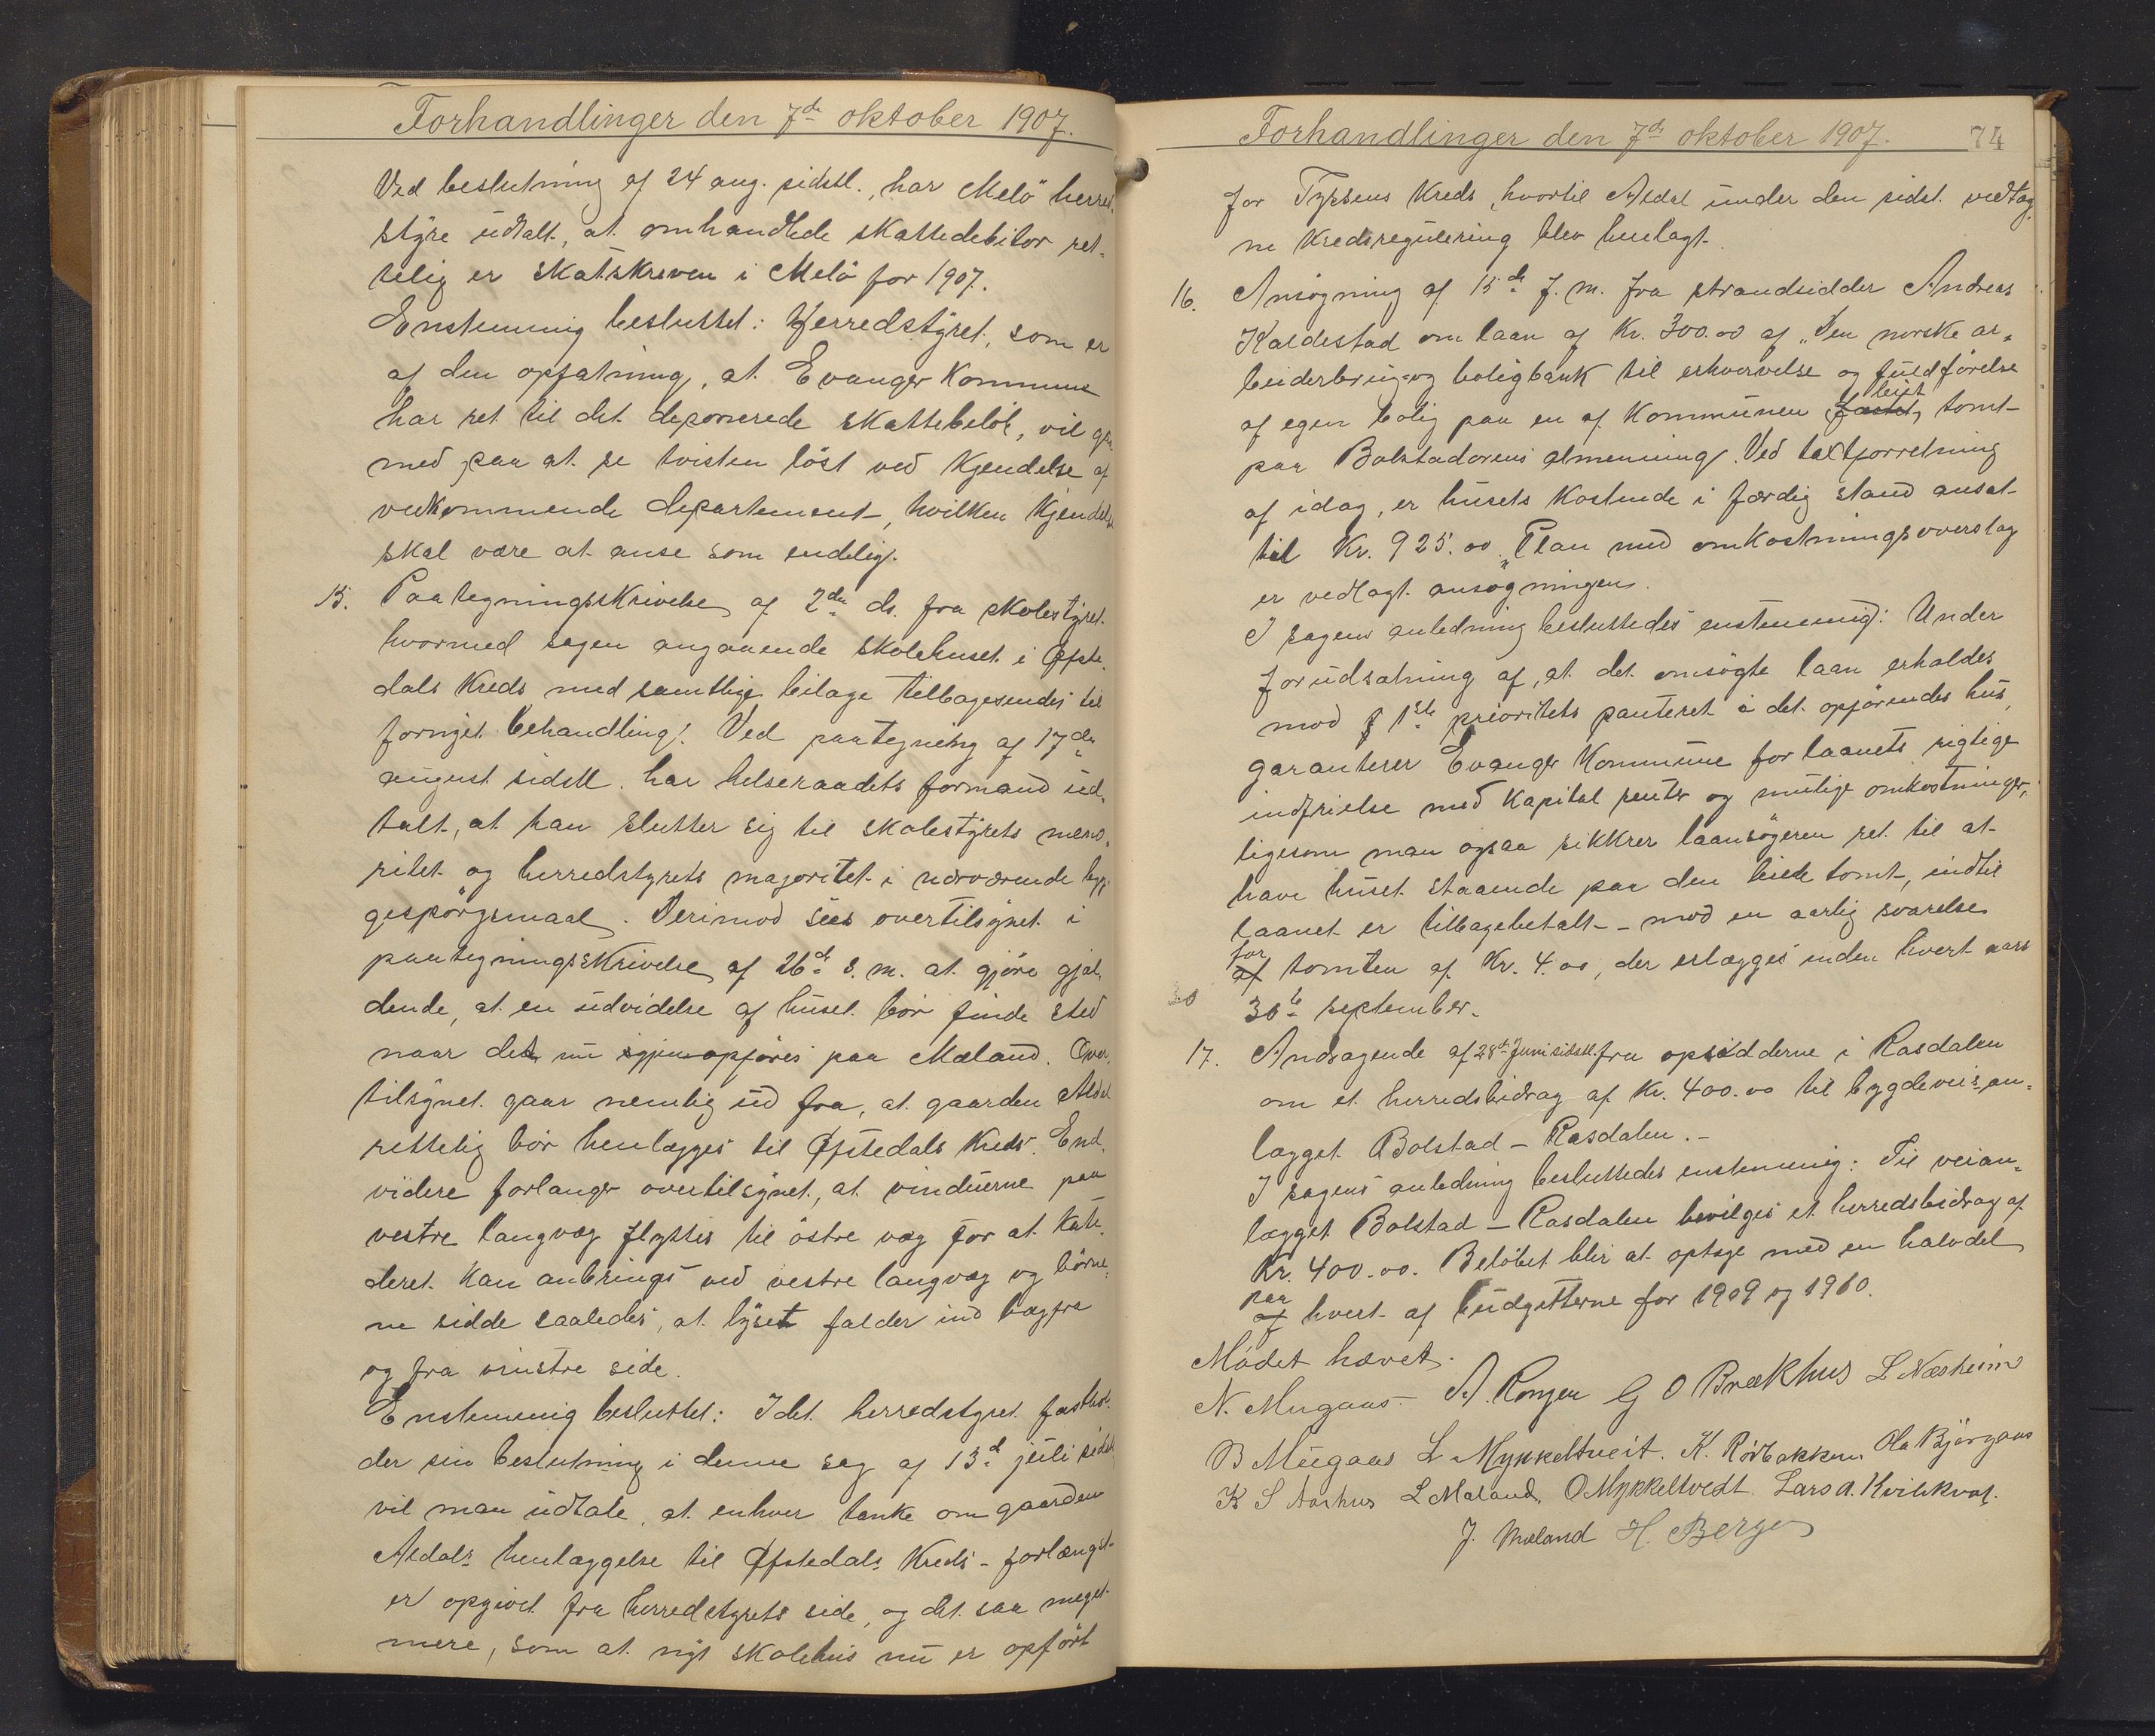 Forhandlinger den 7de oktober 1907.
Ved beslutning af 24 aug. sidstl., har Melö herred-
styre udtalt, at omhandlede skattedebitor ret-
telig er skatskreven i Melö for 1907.
Enstemmig besluttet: Herredstyret, som er
af den opfatning, at Evanger kommune
har ret til det deponerede skattebelöb, vil gaa
med paa at se tvisten löst ved kjendelse af
vedkommende departement, hvilken kjendelse
skal være at anse som endelig.
15. Paategningsskrivelse af 2den ds. fra skolestyret
hvormed sagen angaaende skolehuset i Øfste-
dals kreds med samtlige bilage tilbagesendes til
fornyet behandling. Ved paategning af 17de
august sidstl. har helseraadets formand ud-
talt, at han slutter sig til skolestyrets mino-
ritet og herredstyrets majoritet i nærværende byg-
gespörgsmaal. Derimod sees overtilsynet i
paategningsskrivelse af 26de s. m. at gjöre gjæl-
dende, at en udvidelse af huset bör finde sted
naar det nu igjenopföres paa Mæland. Over-
tilsynet gaar nemlig ud fra, at gaarden Aldal
rettelig bör henlægges til Øfstedals kreds. End-
videre forlanger overtilsynet, at vinduerne paa
vestre langvæg flyttes til östre væg for at kate-
deret kan anbringes ved vestre langvæg og börne-
ne sidde saaledes, at lyset falder ind bagfra
og fra vinstre side.
Enstemmig besluttet: Idet herredstyret fasthol-
der sin beslutning i denne sag af 13de juli sidstl.
vil man udtale, at enhver tanke om gaarden
Aldals henlæggelse til Øfstedals kreds - forlængst
er opgivet fra herredstyrets side, og det saa meget
mere, som at nyt skolehus nu er opfört
Forhandlinger den 7de oktober 1907. 74
for Tyssens kreds, hvortil Aldal under den sidst vedtag-
ne kredsregulering blev henlagt.
16. Ansögning af 15de f. m. fra strandsidder Andreas
Kaldestad om laan af Kr. 300.00 af "Den norske ar-
beiderbrug- og boligbank til erhvervelse og fuldförelse
af egen bolig paa en af kommunen fæstet leiet tomt
paa Bolstadörens almenning. Ved taxtforretning
af idag, er husets kostende i færdig stand ansat
til Kr. 925.00. Plan med omkostningsoverslag
er vedlagt ansögningen.
I sagens anledning besluttedes enstemmig: Under
forudsætning af, at det omsögte laan erholdes
mod 1ste prioritets panteret i det opförendes hus,
garanterer Evanger kommune for laanets rigtige
indfrielse med kapital renter og mulige omkostninger,
ligesom man ogsaa sikkrer laansögeren ret til at
have huset staaende paa den leiede tomt, indtil
laanet er tilbagebetalt - mod en aarlig svarelse
af for tomten af Kr. 4.00, der erlægges inden hvert aars
30 30te september.
17. Andragende af 28de Juni sidstl. fra opsidderne i Rasdalen
om et herredsbidrag af Kr. 400.00 til bygdeveis-an-
lægget Bolstad - Rasdalen. -
I sagens anledning besluttedes enstemmig: Til veian-
lægget Bolstad - Rasdalen bevilges et herredsbidrag af
Kr. 400.00. Belöbet blir at optage med en halvdel
af paa hvert af budgetterne for 1909 og 1910.
Mödet hævet.
N. Mugaas. A. Rongen G O Brækhus L Næsheim
B Mugaas L Mykkeltveit. K. Rödbakken Ola Björgaas
K S Aarhus L Mæland, O Mykkeltvedt Lars A. Kvilekval.
J. Mæland H. Berge